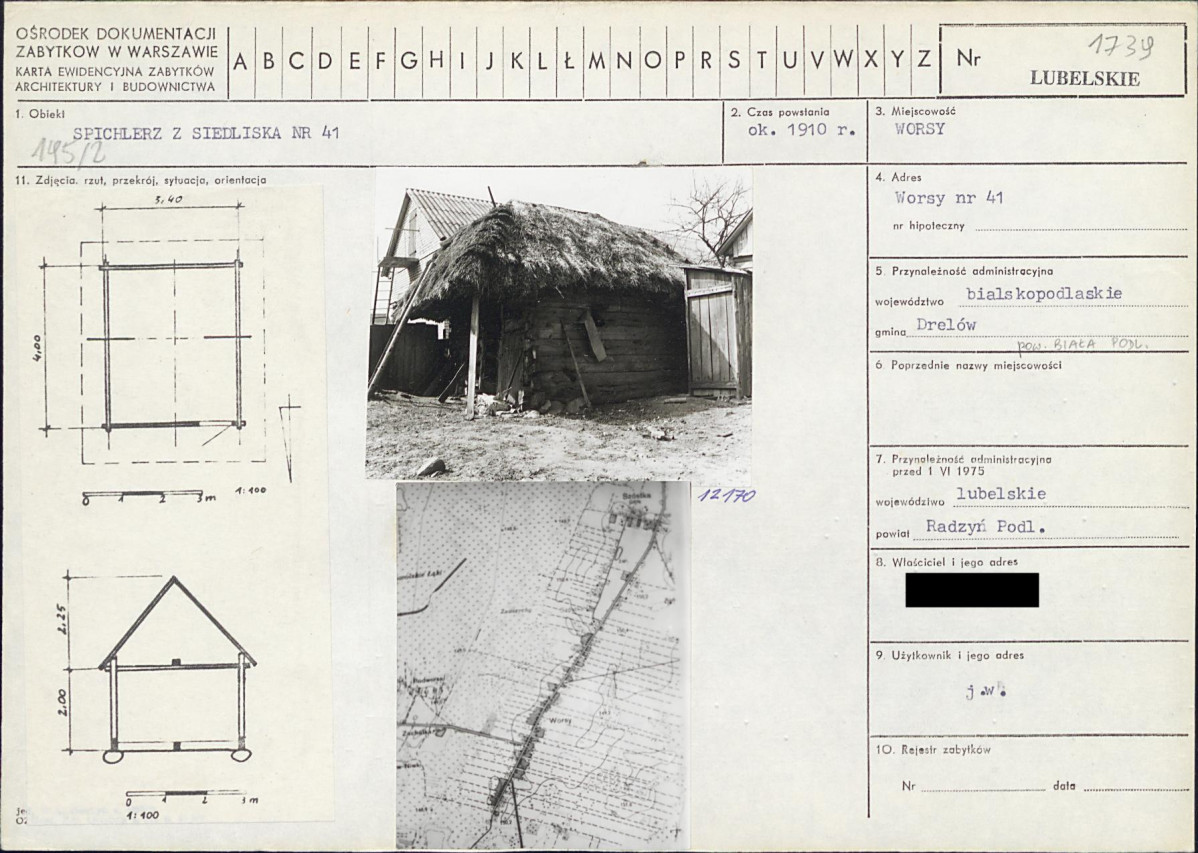 OŚRODEK DOKUMENTACJI
ZABYTKOW W WARSZAWIE
KARTA EWIDENCYJNA ZABYTKÓW
ARCHITEKTURY I BUDOWNICTWA
A B C D E F G H I J K L Ł M N O P R S T U V W X Y Z
Nr
1739
LUBELSKIE
1. Obiekt
SPICHLERZ Z SIEDLISKA NR 41
195/2
2. Czas powstania
ok. 1910 r.
3. Miejscowość
WORSY
4. Adres
Worsy nr 41
nr hipoteczny
5. Przynależność administracyjna
województwo bialskopodlaskie
gmina Drelów
pow. BIAŁA PODL.
6. Poprzednie nazwy miejscowości
7. Przynależność administracyjna
przed 1 VI 1975
województwo lubelskie
powiat Radzyń Podl.
8. Właściciel i jego adres
9. Użytkownik i jego adres
j.w.
10. Rejestr zabytków
Nr data
11. Zdjęcia. rzut, przekrój, sytuacja, orientacja
3,40
4,00
0 1 2 3 m
1:100
2,25
2,00
0 1 2 3 m
1:100
12170
Worsy